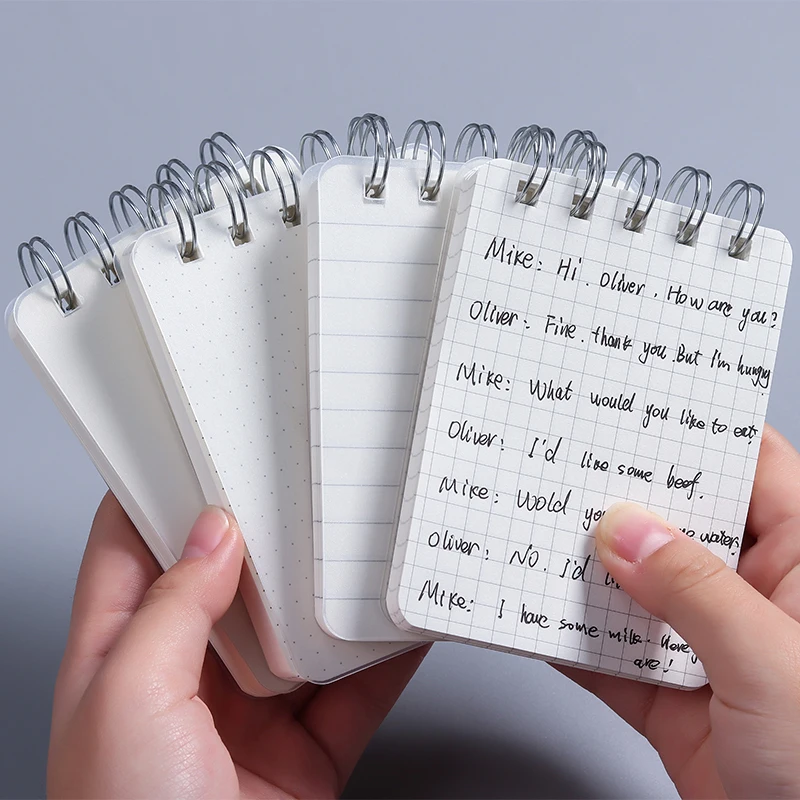 Mike: Hi. Oliver. How are you?
Oliver: Fine. thank you. But I'm hungry
Mike: What would you like to eat?
Oliver: I'd like some beef.
Mike: Wold you water?
Oliver: No. I'd
Mike: I have some milk.
are!